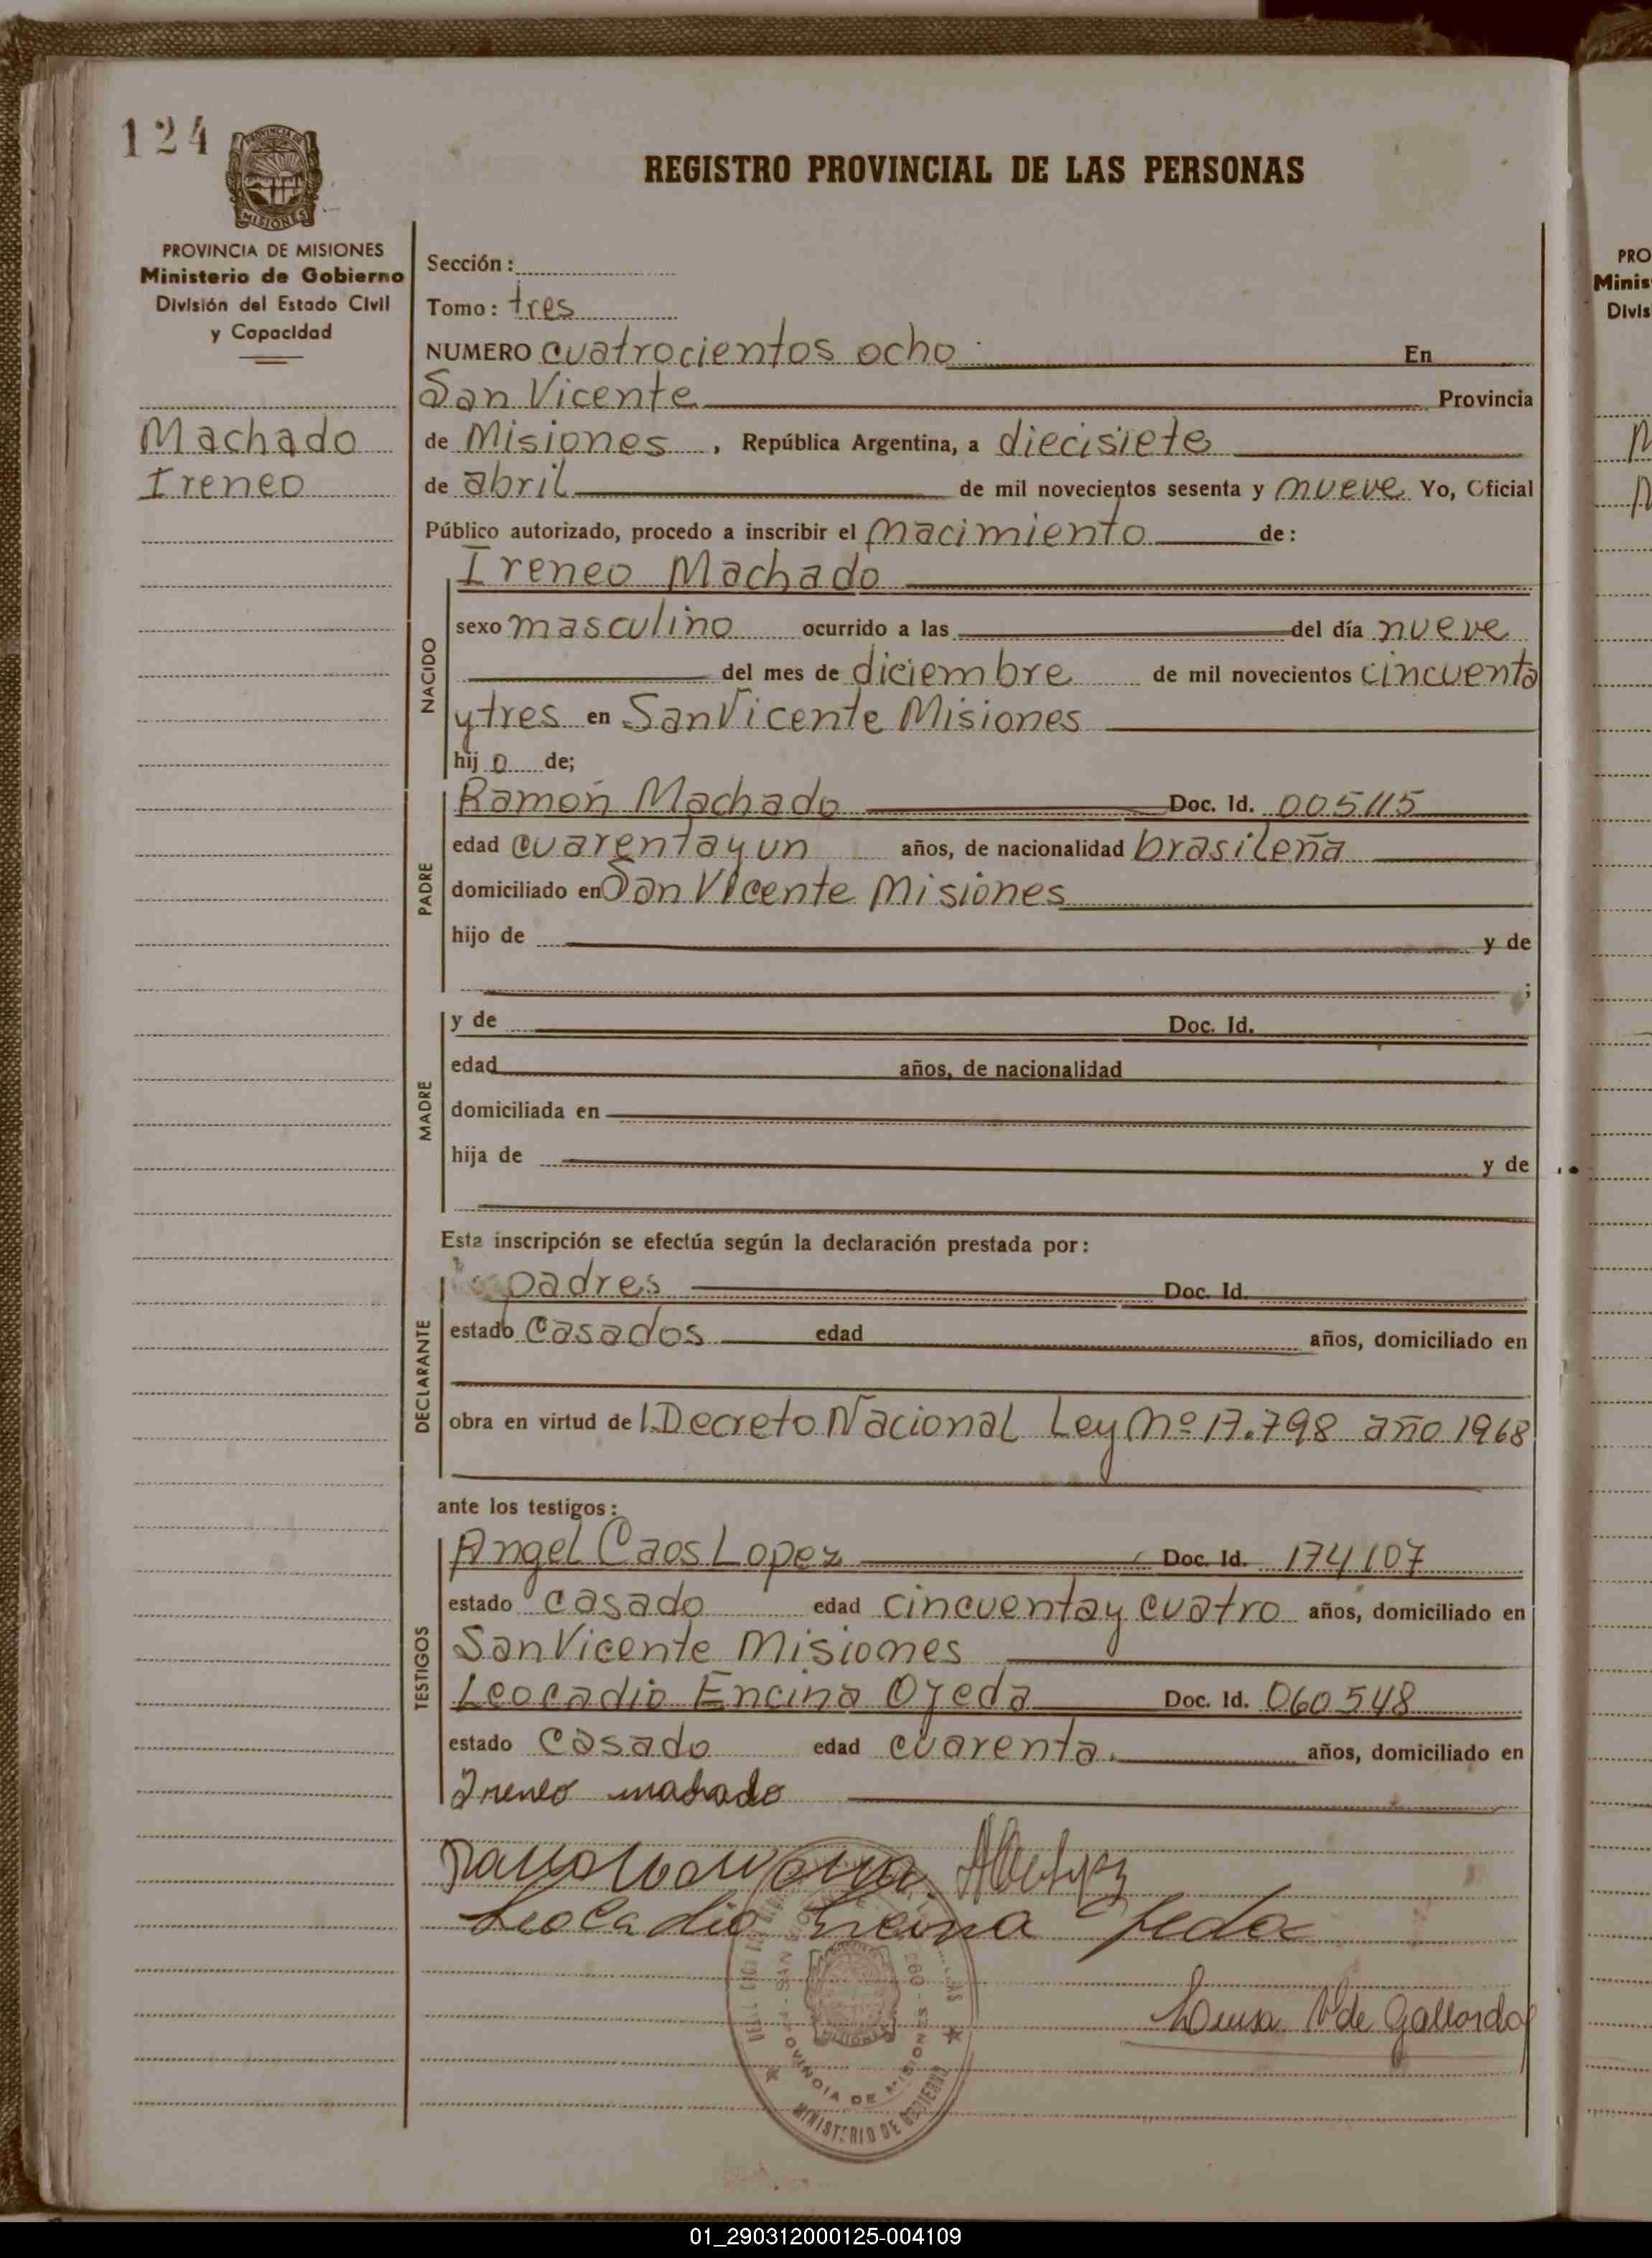 124
PROVINCIA DE MISIONES
Ministerio de Gobierno
División del Estado Civil
y Capacidad
Machado
Ireneo
REGISTRO PROVINCIAL DE LAS PERSONAS
Sección:
Tomo: tres
NUMERO cuatrocientos ocho En
San Vicente Provincia
de Misiones, República Argentina, a diecisiete
de abril de mil novecientos sesenta y nueve Yo, Oficial
Público autorizado, procedo a inscribir el nacimiento de:
NACIDO
Ireneo Machado
sexo masculino ocurrido a las del día nueve
del mes de diciembre de mil novecientos cincuenta
y tres en San Vicente Misiones
hij o de;
PADRE
Ramón Machado Doc. Id. 005115
edad cuarenta y un años, de nacionalidad brasileña
domiciliado en San Vicente Misiones
hijo de y de
;
MADRE
y de Doc. Id.
edad años, de nacionalidad
domiciliada en
hija de y de
Esta inscripción se efectúa según la declaración prestada por:
DECLARANTE
padres Doc. Id.
estado casados edad años, domiciliado en
obra en virtud de l. Decreto Nacional Ley Nº 17.798 año 1968
ante los testigos:
TESTIGOS
Angel Caos Lopez Doc. Id. 174107
estado casado edad cincuenta y cuatro años, domiciliado en
San Vicente Misiones
Leocadio Encina Ojeda Doc. Id. 060548
estado casado edad cuarenta. años, domiciliado en
Ireneo machado
Leocadio Encina Ojeda
Luisa V de Gallardo
MISIONES
PROVINCIA DE MISIONES
MINISTERIO DE GOBIERNO
PRO
Minis
Divis
01_290312000125-004109